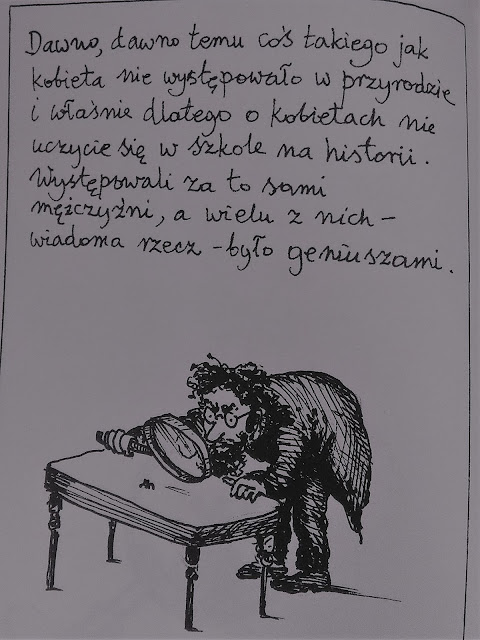 Dawno, dawno temu coś takiego jak
kobieta nie występowało w przyrodzie
i właśnie dlatego o kobietach nie
uczycie się w szkole na historii.
Występowali za to sami
mężczyźni, a wielu z nich –
wiadoma rzecz – było geniuszami.